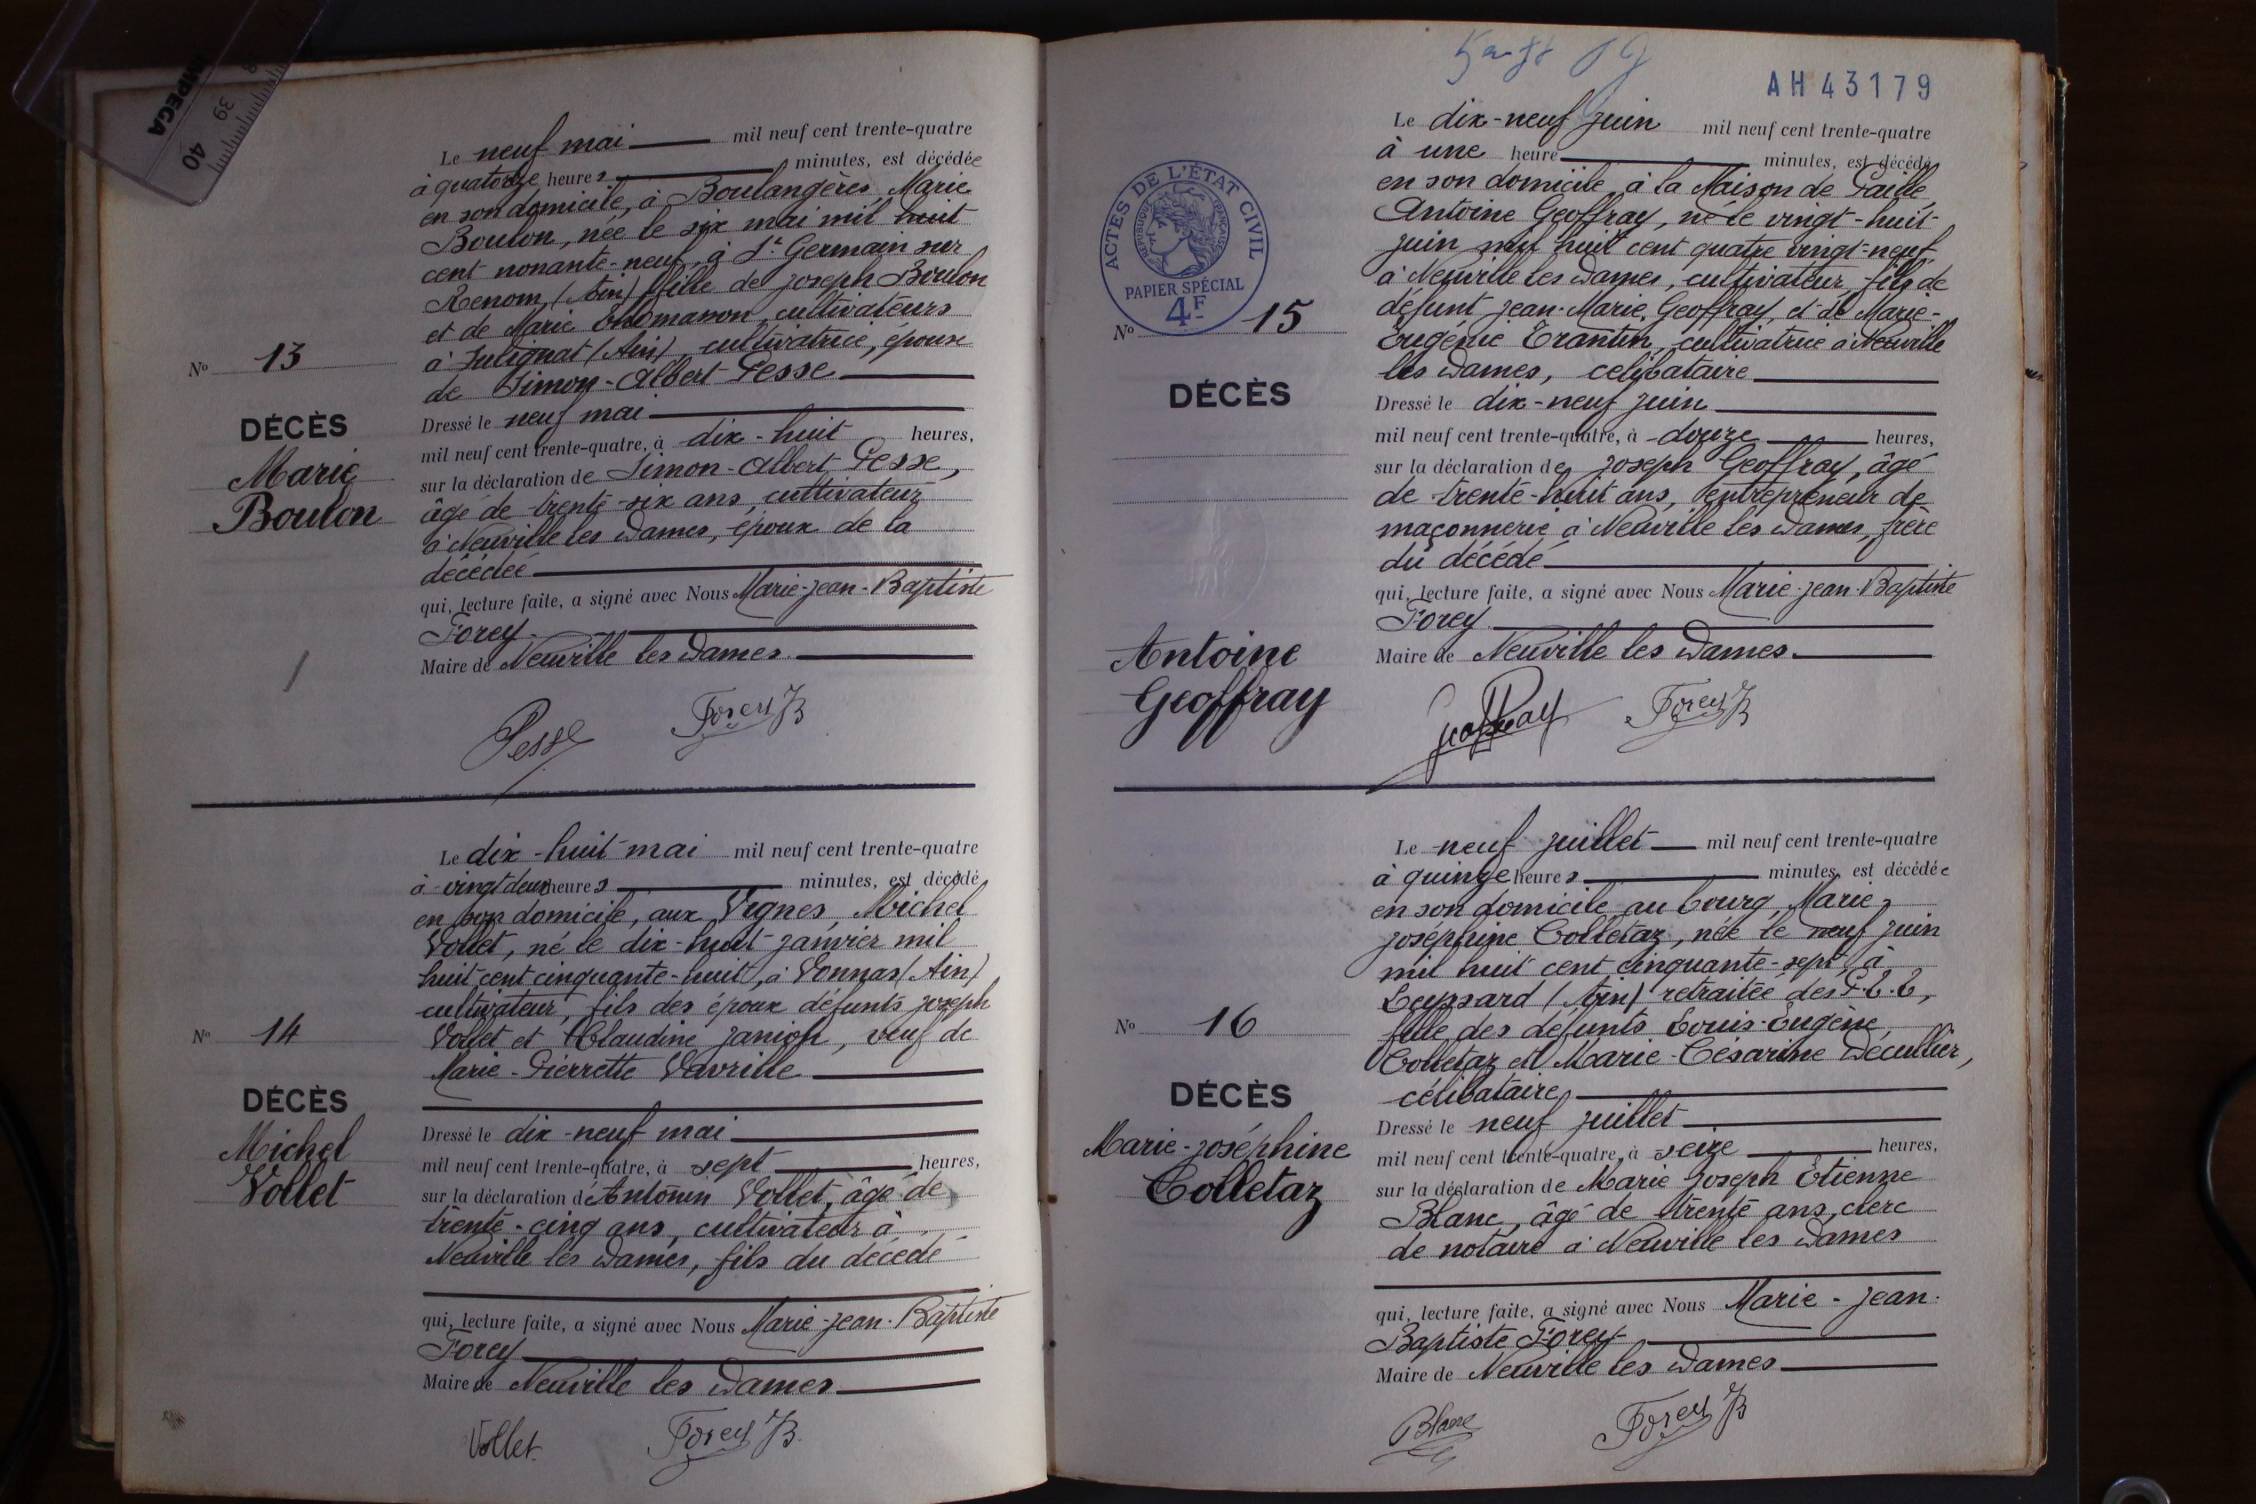 IMPEGA
39
40
Le neuf mai mil neuf cent trente-quatre
à quatorze heures minutes, est décédée
en son domicile, à Boulangères, Marie
Boulon, née le six mai mil huit
cent nonante-neuf, à St Germain sur
Renom, (Ain) fille de Joseph Boulon
et de Marie Thomasson, cultivateurs
à Sulignat (Ain), cultivatrice, épouse
de Simon-Albert Pesse
Dressé le neuf mai
mil neuf cent trente-quatre, à dix-huit heures,
sur la déclaration de Simon-Albert Pesse,
âgé de trente-six ans, cultivateur
à Neuville les Dames, époux de la
décédée
qui, lecture faite, a signé avec Nous Marie-Jean-Baptiste
Forey
Maire de Neuville les Dames
Pesse Forey JB
No 13
DÉCÈS
Marie
Boulon
Le dix-huit mai mil neuf cent trente-quatre
à vingt deux heures minutes, est décédé
en son domicile, aux Vignes, Michel
Vollet, né le dix-huit janvier mil
huit cent cinquante-huit, à Vonnas (Ain)
cultivateur, fils des époux défunts Joseph
Vollet et Claudine Janion, veuf de
Marie-Pierrette Vavrille
Dressé le dix-neuf mai
mil neuf cent trente-quatre, à sept heures,
sur la déclaration d'Antonin Vollet, âgé de
trente-cinq ans, cultivateur à
Neuville les Dames, fils du décédé
qui, lecture faite, a signé avec Nous Marie-Jean-Baptiste
Forey
Maire de Neuville les Dames
Vollet Forey JB
No 14
DÉCÈS
Michel
Vollet
AH43179
Le dix-neuf juin mil neuf cent trente-quatre
à une heure minutes, est décédé
en son domicile, à la Maison de Paille,
Antoine Geoffray, né le vingt-huit
juin mil huit cent quatre vingt-neuf,
à Neuville les Dames, cultivateur, fils de
défunt Jean-Marie, Geoffray, et de Marie-
Eugénie Trantin, cultivatrice à Neuville
les Dames, célibataire
Dressé le dix-neuf juin
mil neuf cent trente-quatre, à douze heures,
sur la déclaration de Joseph Geoffray, âgé
de trente-huit ans, entrepreneur de
maçonnerie à Neuville les Dames, frère
du décédé
qui, lecture faite, a signé avec Nous Marie-Jean-Baptiste
Forey
Maire de Neuville les Dames
Geoffray Forey JB
ACTES DE L'ÉTAT CIVIL
RÉPUBLIQUE FRANÇAISE
PAPIER SPÉCIAL
4F
No 15
DÉCÈS
Antoine
Geoffray
Le neuf juillet mil neuf cent trente-quatre
à quinze heures minutes, est décédée
en son domicile au bourg, Marie,
Joséphine Colletaz, née le neuf juin
mil huit cent cinquante-sept, à
Leyssard (Ain) retraitée des P.T.T,
fille des défunts Louis-Eugène,
Colletaz et Marie-Césarine Décullier,
célibataire
Dressé le neuf juillet
mil neuf cent trente-quatre, à seize heures,
sur la déclaration de Marie Joseph Etienne
Blanc, âgé de trente ans, clerc
de notaire à Neuville les Dames
qui, lecture faite, a signé avec Nous Marie-Jean-
Baptiste Forey
Maire de Neuville les Dames
Blanc Forey JB
No 16
DÉCÈS
Marie-Joséphine
Colletaz